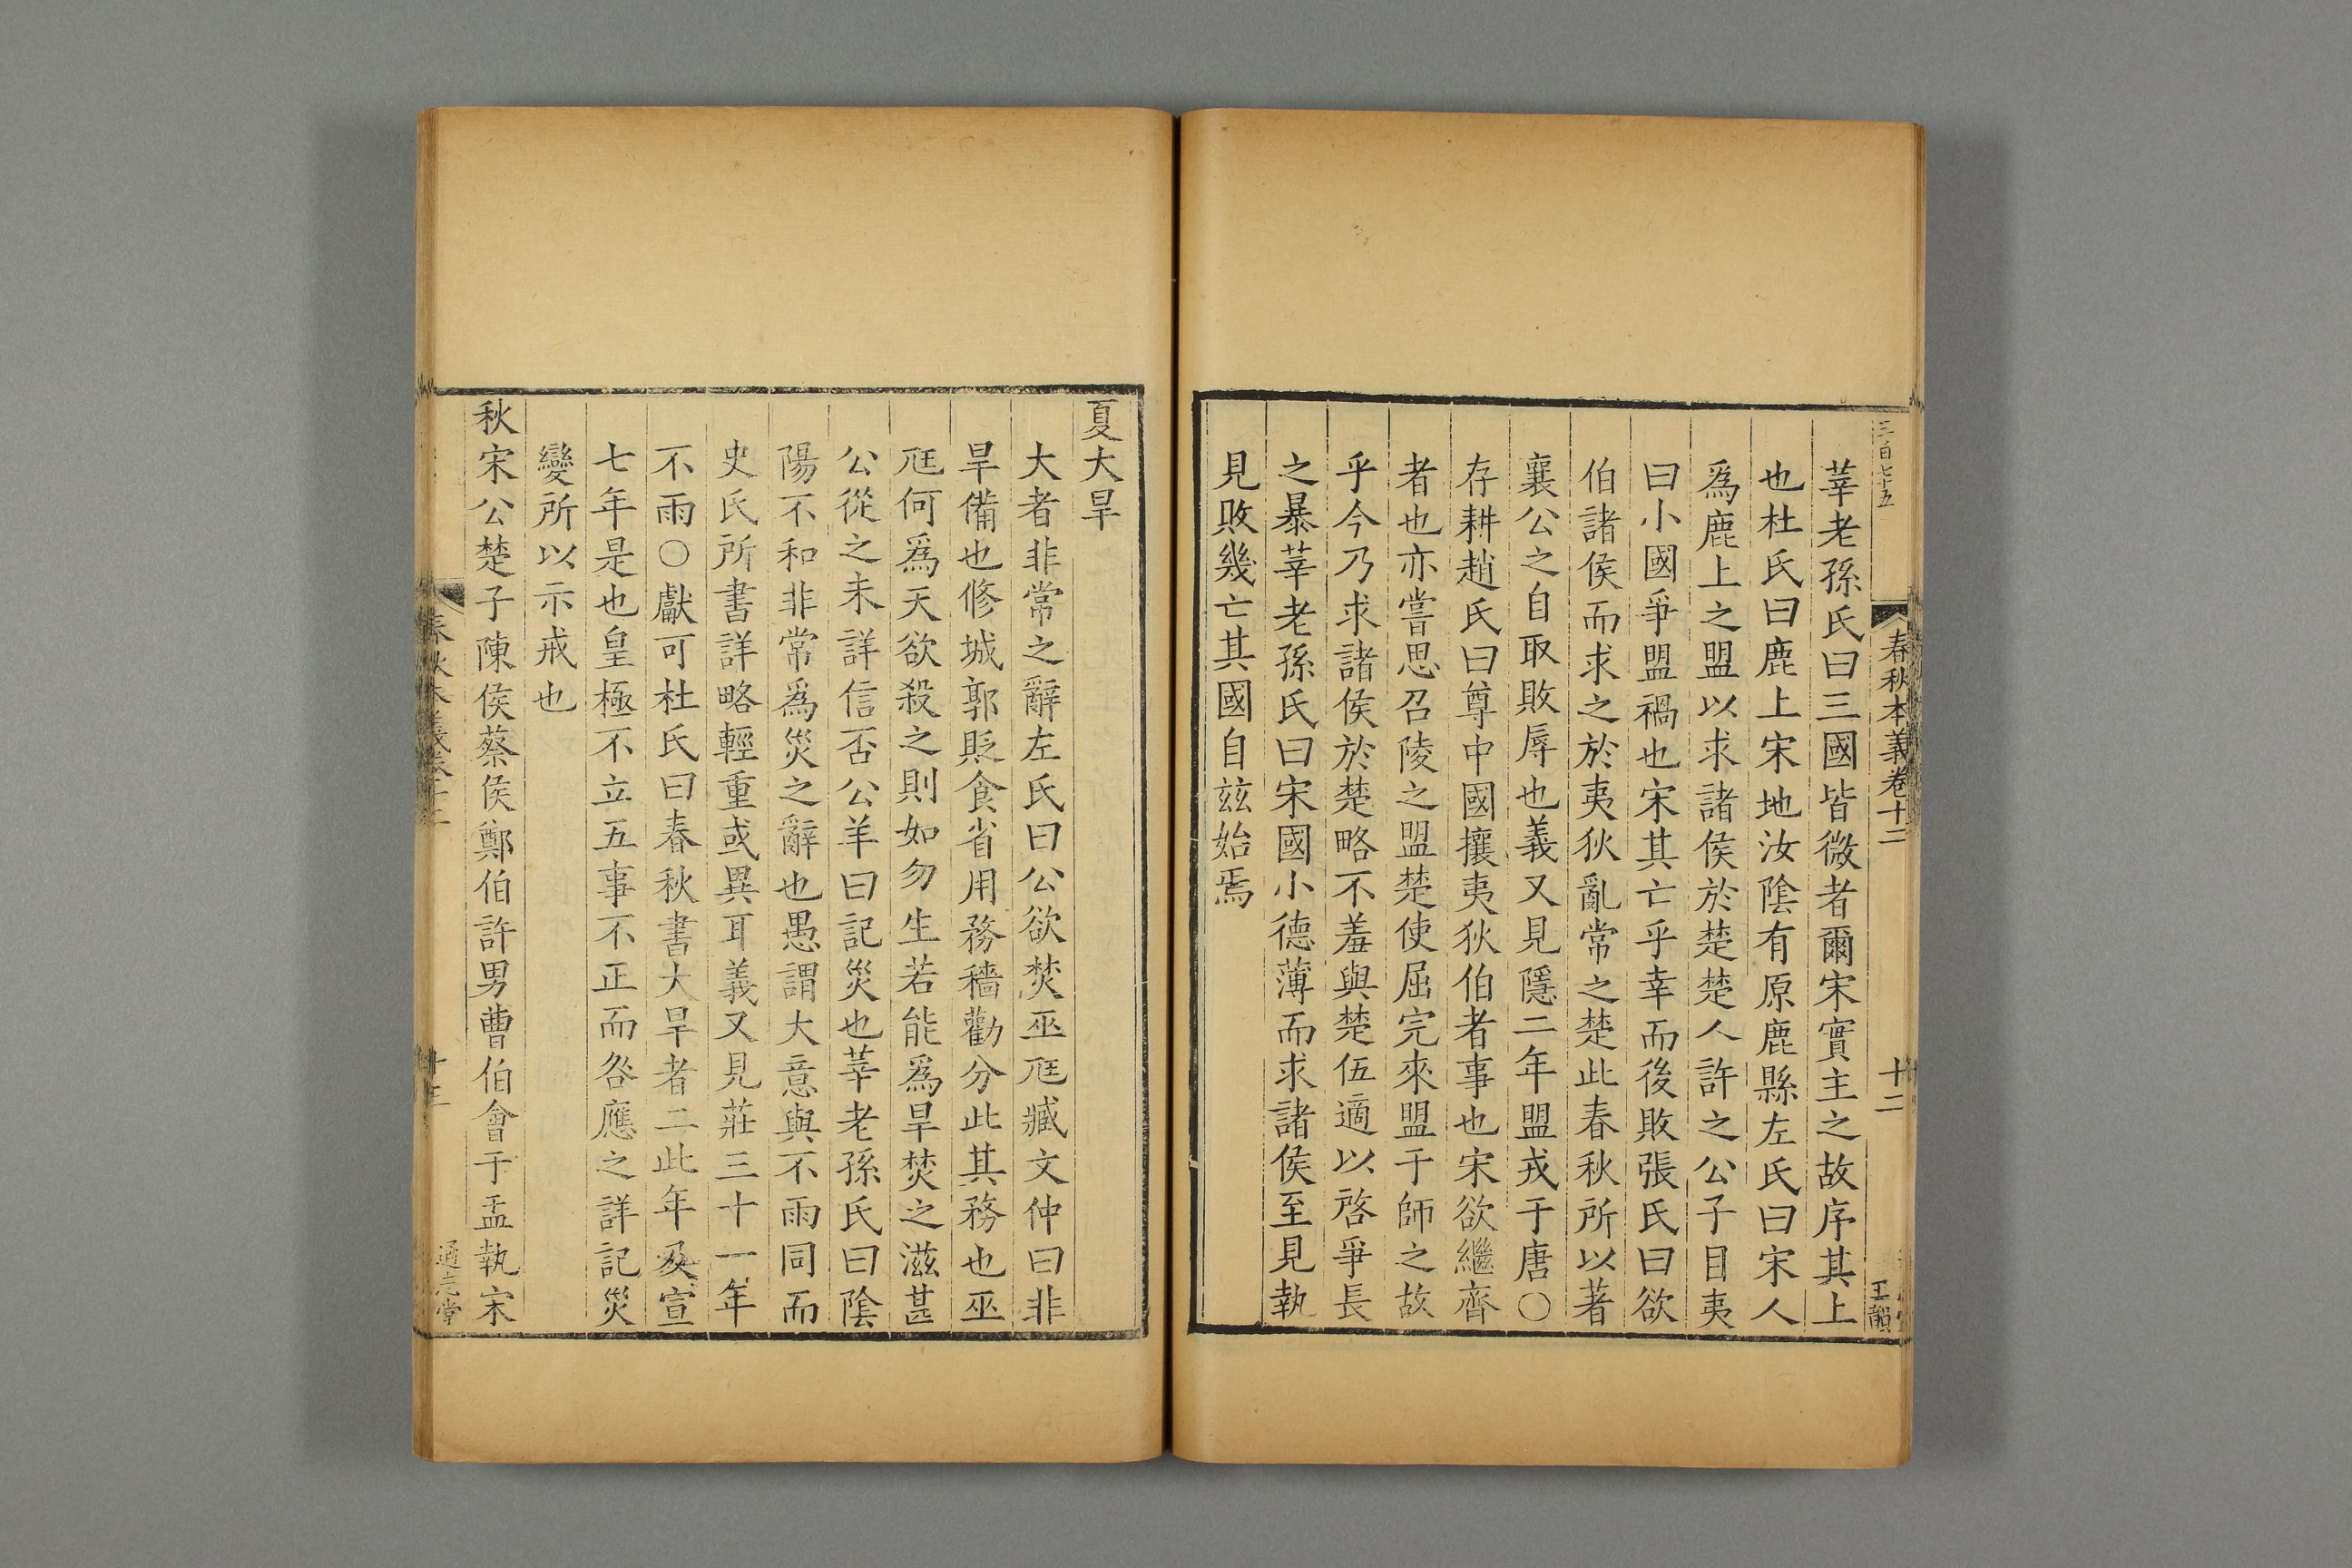 三百七十五
春秋本義卷十二
十二
王韻
莘老孫氏曰三國皆微者爾宋實主之故序其上
也杜氏曰鹿上宋地汝陰有原鹿縣左氏曰宋人
爲鹿上之盟以求諸侯於楚楚人許之公子目夷
曰小國爭盟禍也宋其亡乎幸而後敗張氏曰欲
伯諸侯而求之於夷狄亂常之楚此春秋所以著
襄公之自取敗辱也義又見隱二年盟戎于唐〇
存耕趙氏曰尊中國攘夷狄伯者事也宋欲繼齊
者也亦嘗思召陵之盟楚使屈完來盟于師之故
乎今乃求諸侯於楚略不羞與楚伍適以啓爭長
之暴莘老孫氏曰宋國小德薄而求諸侯至見執
見敗幾亡其國自玆始焉
夏大旱
大者非常之辭左氏曰公欲焚巫尫臧文仲曰非
旱備也修城郭貶食省用務穡勸分此其務也巫
尫何爲天欲殺之則如勿生若能爲旱焚之滋甚
公從之未詳信否公羊曰記災也莘老孫氏曰陰
陽不和非常爲災之辭也愚謂大意與不雨同而
史氏所書詳略輕重或異耳義又見莊三十一年
不雨〇獻可杜氏曰春秋書大旱者二此年及宣
七年是也皇極不立五事不正而咎應之詳記災
變所以示戒也
秋宋公楚子陳侯蔡侯鄭伯許男曹伯會于盂執宋
春秋本義卷十二
十三
通志堂